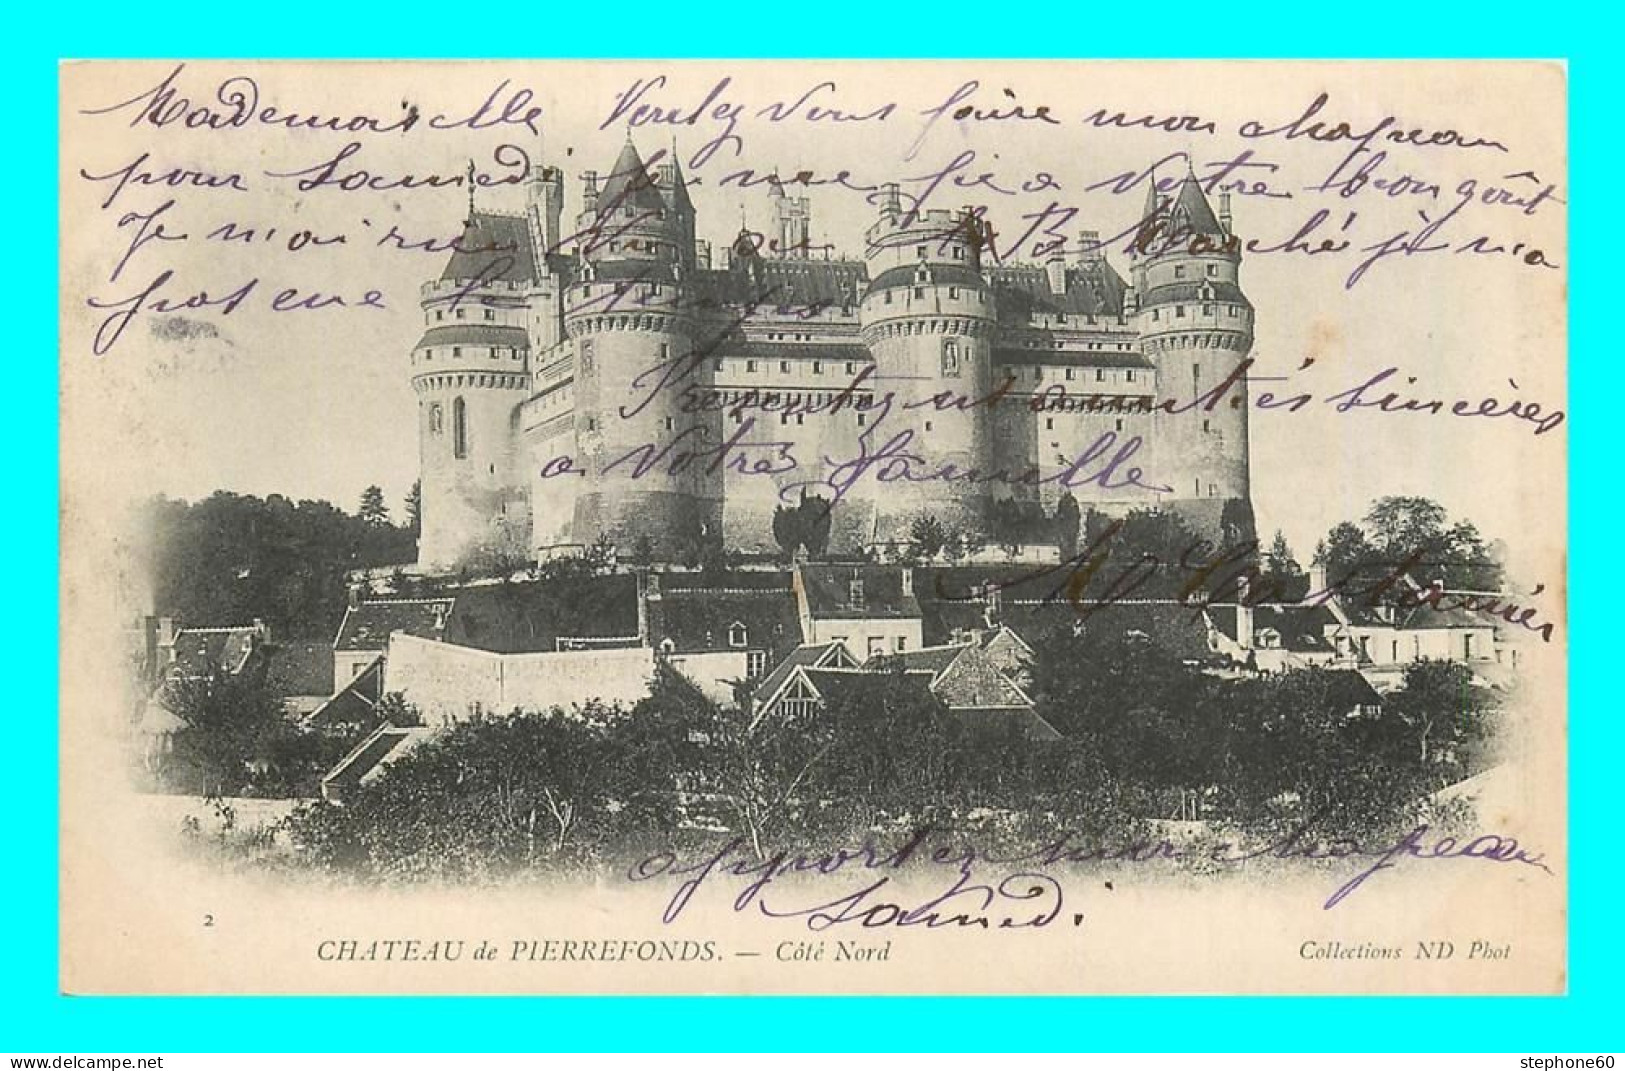 Mademoiselle Veulez Vous faire mon chapeau
pour Samedi Je me fie a Votre bon goût
Je n'ai rien Vu au B Marché je n'a
pat eue le temps
Presentez
a Votre famille
apportez mon chapeau
Samedi.
2
CHATEAU de PIERREFONDS. — Côté Nord
Collections ND Phot
delcampe.net
stephone60